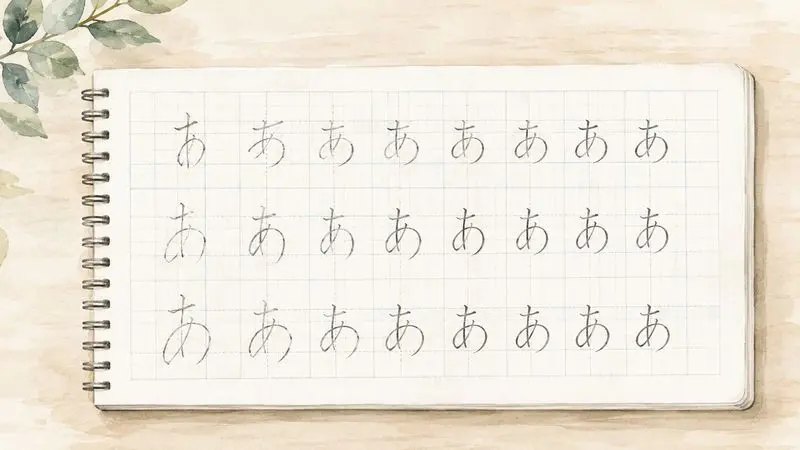 あ あ あ あ あ あ あ あ
あ あ あ あ あ あ あ あ
あ あ あ あ あ あ あ あ